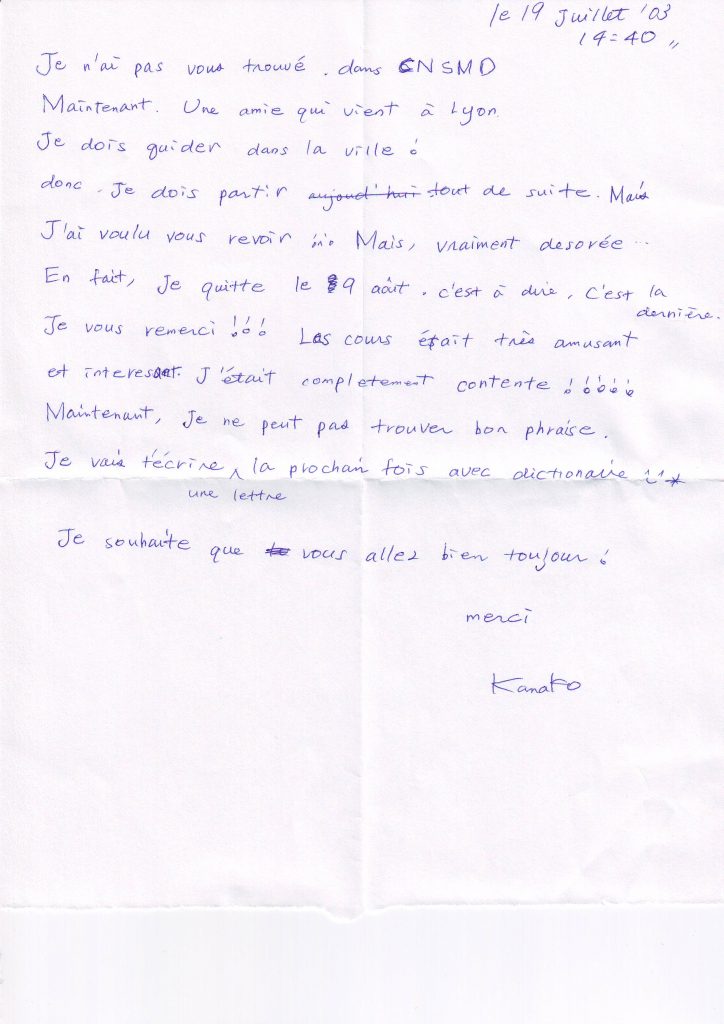 le 19 Juillet '03
14:40 „
Je n'ai pas vous trouvé. dans CNSMD
Maintenant. Une amie qui vient à Lyon.
Je dois guider dans la ville !
donc. Je dois partir aujourd'hui tout de suite. Mais
J'ai voulu vous revoir !!! Mais, vraiment desorée...
En fait, Je quitte le 9 août. c'est à dire, C'est la
dernière.
Je vous remerci !!! Les cours était très amusant
et interesant. J'était completement contente !!!!!
Maintenant, Je ne peut pas trouver bon phraise.
Je vais t'écrire ^ la prochan fois avec dictionaire
une lettre
Je souhaite que vous allez bien toujour !
merci
Kanako